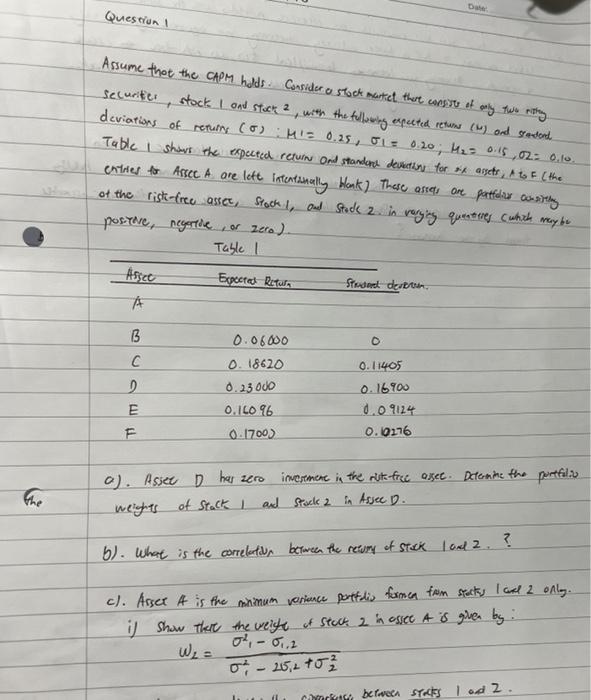 Date:
Question 1
Assume that the CAPM holds. Consider a stock market that consists of only two risky
securities, stock 1 and stock 2, with the following expected returns (μ) and standard
deviations of returns (σ): μ1 = 0.25, σ1 = 0.20; μ2 = 0.15, σ2 = 0.10.
Table 1 shows the expected return and standard deviations for six assets, A to F (the
entries for Asset A are left intentionally blank) These assets are portfolios consisting
of the risk-free asset, Stock 1, and Stock 2 in varying quantities (which may be
positive, negative, or zero).
Table 1
Asset Expected Return Standard deviation.
A
B 0.06000 0
C 0.18620 0.11405
D 0.23000 0.16900
E 0.16096 0.09124
F 0.17000 0.10276
a). Asset D has zero investment in the risk-free asset. Determine the portfolio
The
weights of Stock 1 and Stock 2 in Asset D.
b). What is the correlation between the returns of stock 1 and 2. ?
c). Asset A is the minimum variance portfolio formed from stocks 1 and 2 only.
i) Show that the weight of Stock 2 in asset A is given by:
W₂ = σ²₁ - σ₁,₂ / σ²₁ - 2σ₁,₂ + σ²₂
between stocks 1 and 2.